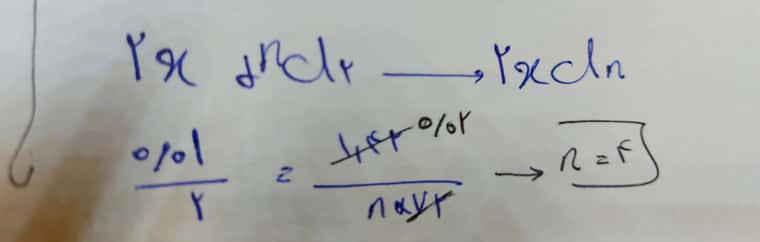 ۲x + nCl۲ → ۲xCln
۰/۰۱ / ۲ = ۱,۴۲ ۰/۰۲ / n×۷۱ → n = ۴